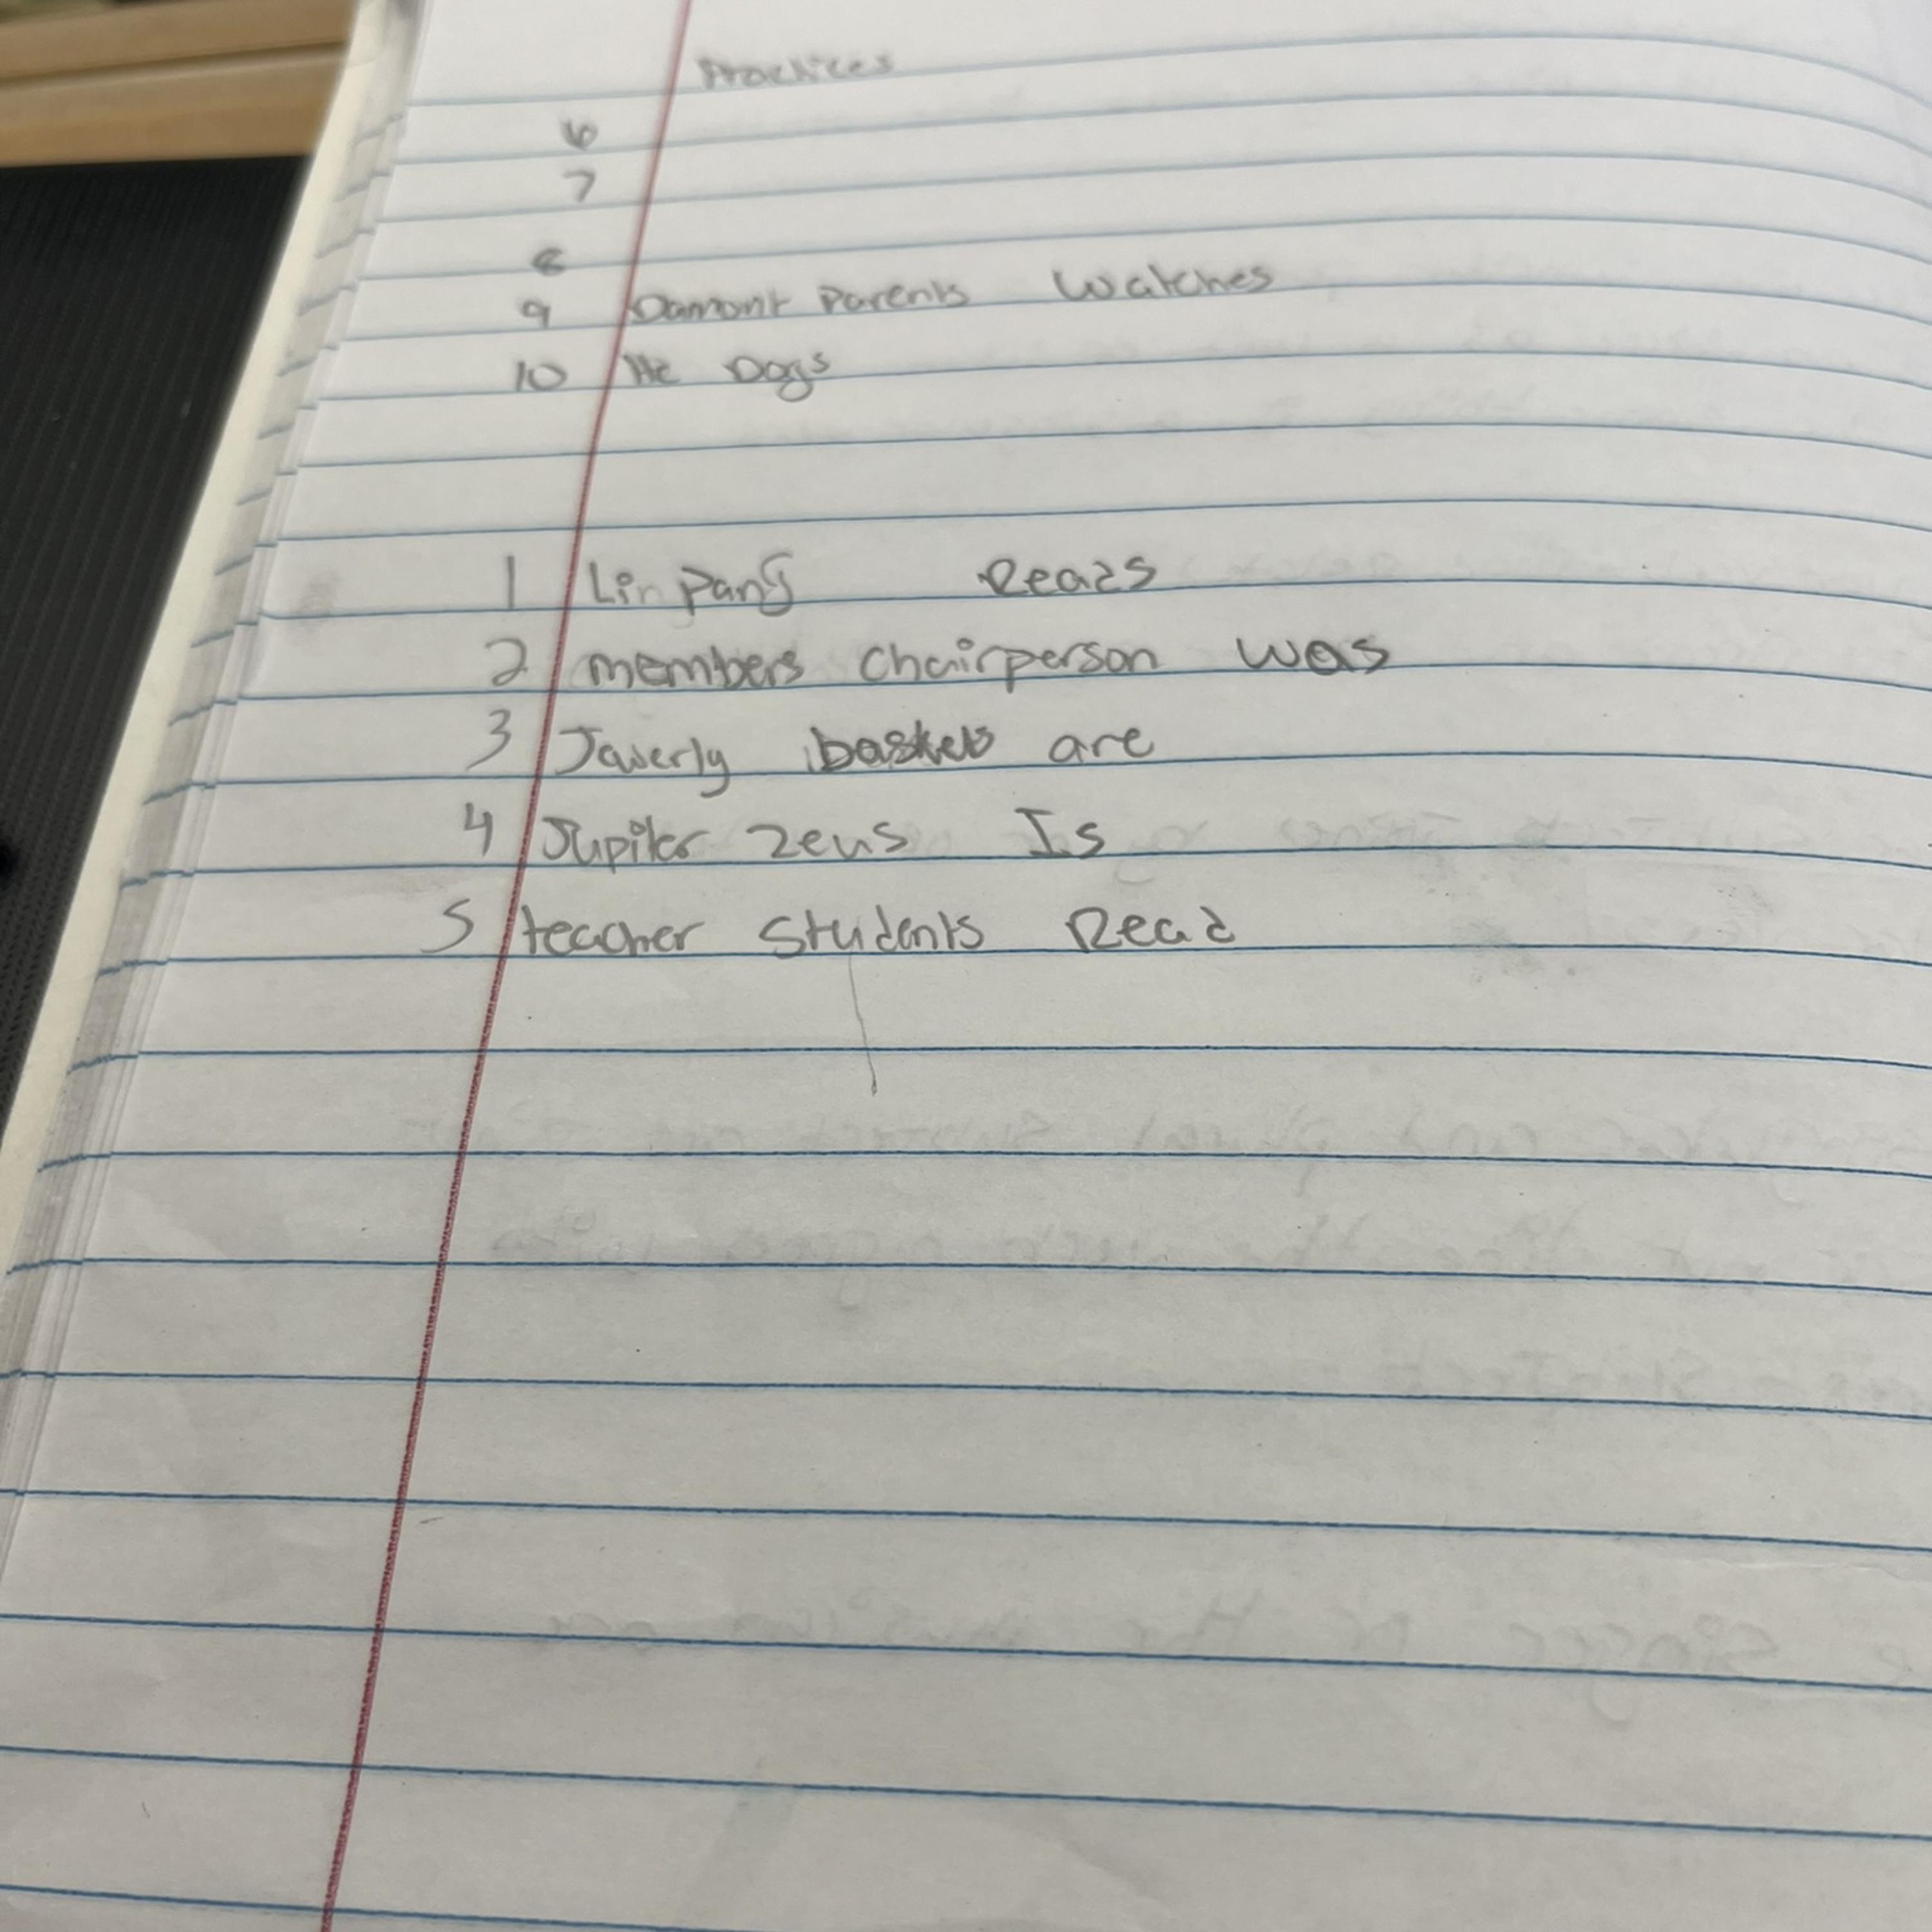 Practices
6
7
8
9 Damont Parents Watches
10 He Dogs
1 Lin Pang Reads
2 members chairperson was
3 Jawerly baskets are
4 Jupiter Zeus Is
5 teacher students Read